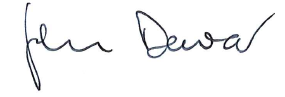 John Dewar